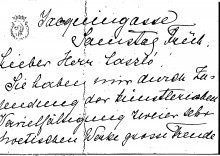 Jacquingasse
Samstag Früh.
Lieber Herr Laszlo.
Sie haben mir durch Zu-
sendung der künstlerischen
Vervielfältigung zweier sehr
poetischen Werke grosse Freude